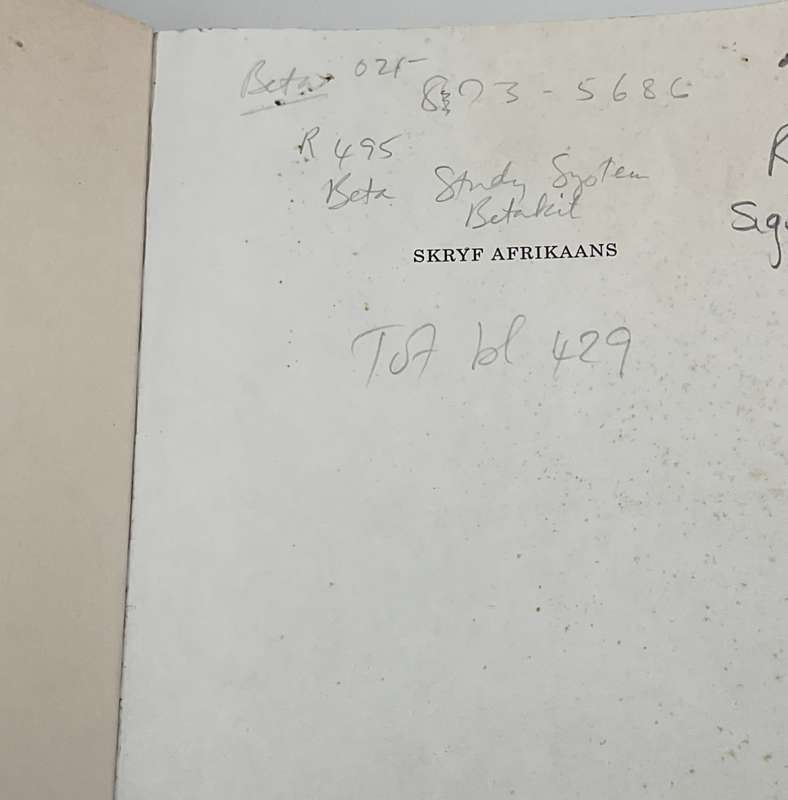 Beta 021-
873-5686
R 495
Beta Study System
Betakit
SKRYF AFRIKAANS
Tot bl 429